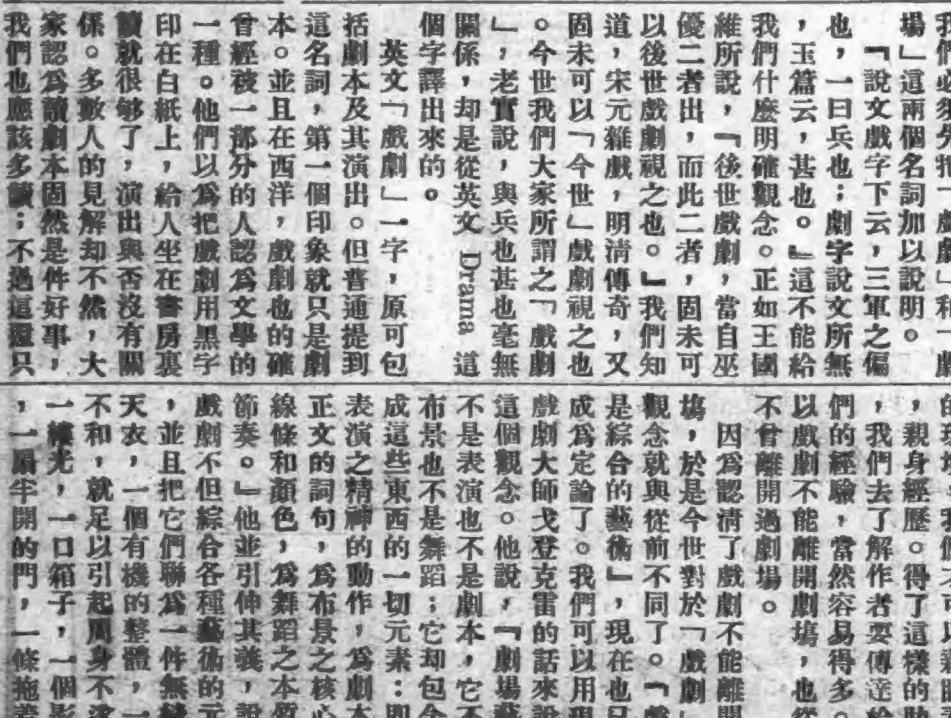 場」這兩個名詞加以說明。
『說文戲字下云，三軍之偏
也，一曰兵也；劇字說文所無
，玉篇云，甚也。』這不能給
我們什麼明確觀念。正如王國
維所說，『後世戲劇，當自巫
優二者出，而此二者，固未可
以後世戲劇視之也。』我們知
道，宋元雜戲，明清傳奇，又
固未可以「今世」戲劇視之也
。今世我們大家所謂之「戲劇
」，老實說，與兵也甚也毫無
關係，却是從英文 Drama 這
個字譯出來的。
英文「戲劇」一字，原可包
括劇本及其演出。但普通提到
這名詞，第一個印象就只是劇
本。並且在西洋，戲劇也的確
曾經被一部分的人認爲文學的
一種。他們以爲把戲劇用黑字
印在白紙上，給人坐在書房裏
讀就很够了，演出與否沒有關
係。多數人的見解却不然，大
家認爲讀劇本固然是件好事，
我們也應該多讀；不過這還只
，親身經歷。得了這樣的
，我們去了解作者要傳達
們的經驗，當然容易得多
以戲劇不能離開劇場，也
不曾離開過劇場。
因爲認清了戲劇不能離
場，於是今世對於「戲劇
觀念就與從前不同了。
是綜合的藝術』，現在也
成爲定論了。我們可以用
戲劇大師戈登克雷的話來
這個觀念。他說，『劇場
不是表演也不是劇本，它
布景也不是舞蹈；它却包
成這些東西的一切元素：即
表演之精神的動作，爲劇
正文的詞句，爲布景之核
線條和顏色，爲舞蹈之本
節奏。』他並引伸其義，
戲劇不但綜合各種藝術的
，並且把它們聯爲一件無
天衣，一個有機的整體，一
不和，就足以引起周身不
一樓光，一口箱子，一個
，一扇半開的門，一條拖